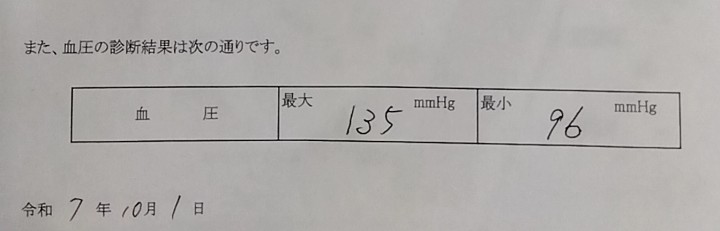 また、血圧の診断結果は次の通りです。
血 圧 最大 135 mmHg 最小 96 mmHg
令和 7 年 10月 1 日